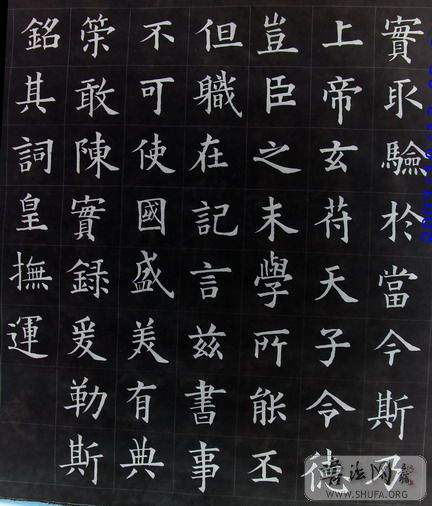 實取驗於當今斯乃
上帝玄苻天子令德
豈臣之末學所能丕
但職在記言茲書事
不可使國盛美有典
策敢陳實録爰勒斯
銘其詞皇撫運
書法网
WWW.SHUFA.ORG